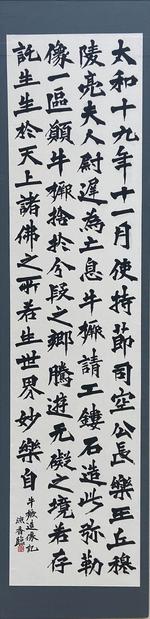 太和十九年十一月使持節司空公長樂王丘穆
陵亮夫人尉遲為亡息牛橛請工鏤石造此弥勒
像一區願牛橛捨於分段之鄉騰遊无礙之境若存
託生生於天上諸佛之所若生世界妙樂自
牛橛造像記
臨